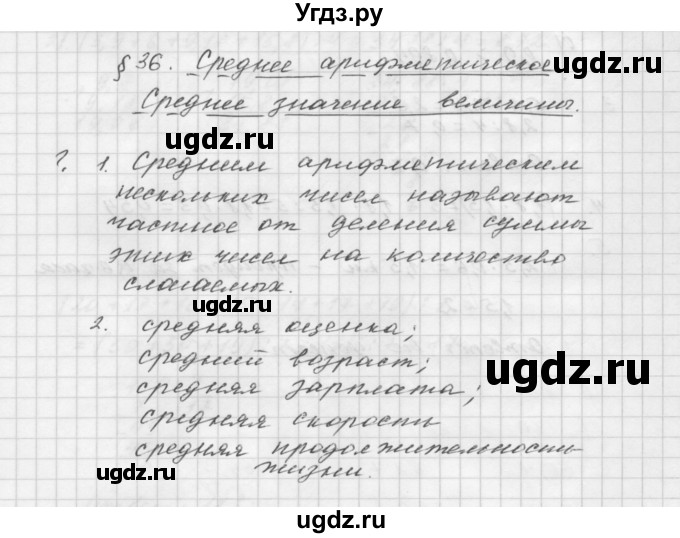 Угдз.ру
§ 36. Среднее арифметическое
Среднее значение величины.
ugdz.ru ugdz.ru
?. 1. Средним арифметическим
нескольких чисел называют
частное от деления суммы
этих чисел на количество
слагаемых.
ugdz.ru
2. средняя оценка;
средний возраст;
ugdz.ru
средняя зарплата;
средняя скорость
средняя продолжительность
жизни.
ugdz.ru ugdz.ru
ugdz.ru